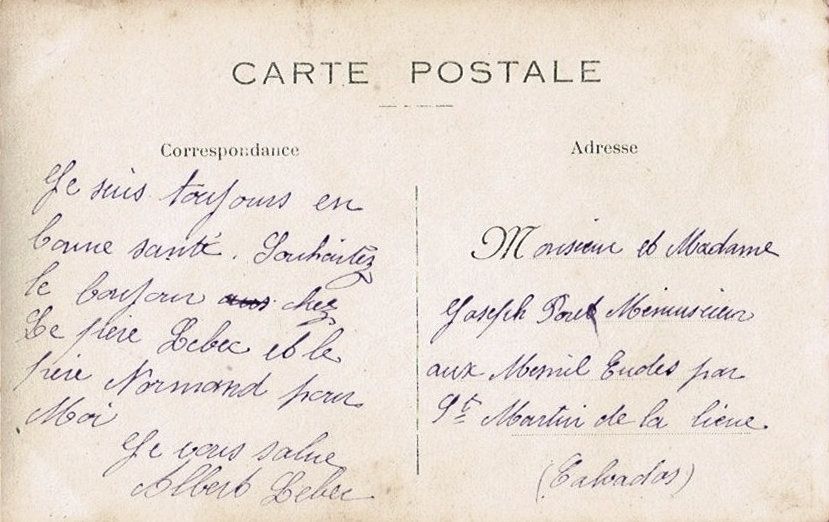 CARTE POSTALE
Correspondance
Je suis toujours en
bonne santé. Souhaitez
le bonjour aux chez
Le père Lebec et le
père Normand pour
Moi
Je vous salue
Albert Lebec
Adresse
Monsieur et Madame
Joseph Menuisier
aux Mesnil Eudes par
St Martin de la lieue
(Calvados)